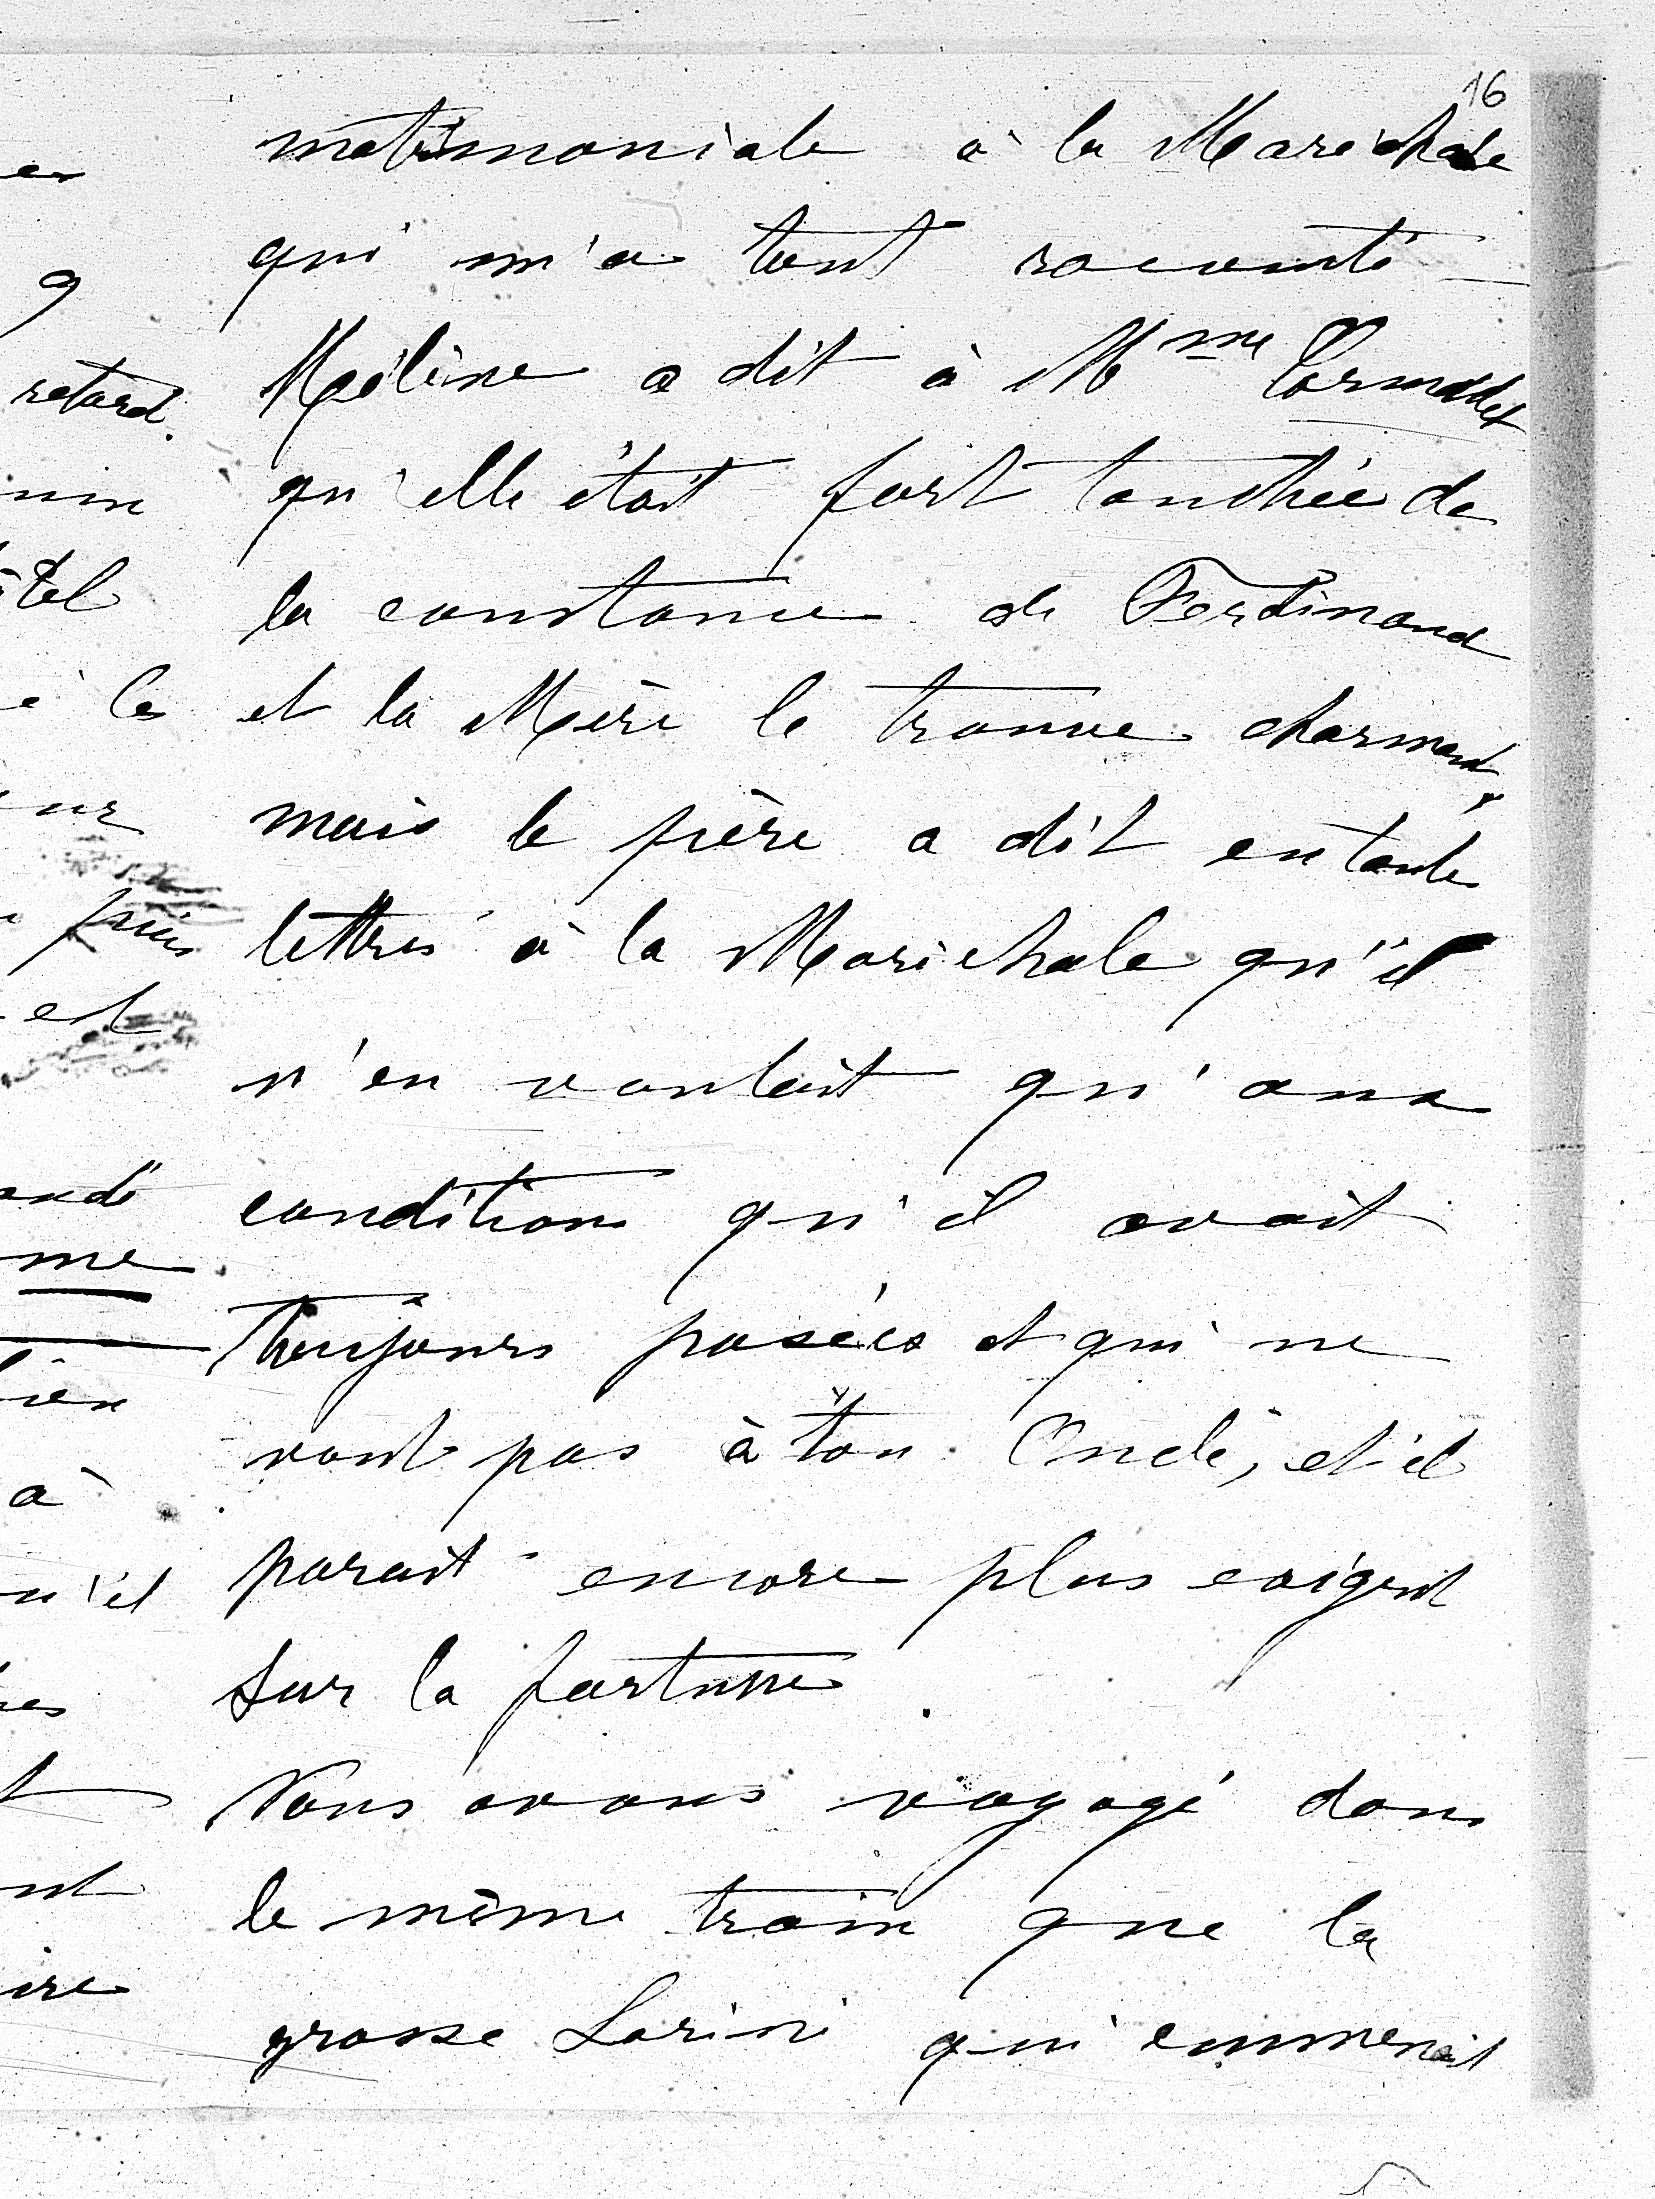 16
matrimoniale à la Maréchale
qui m'a tout raconté
a dit à Mme
qu'elle était fort touchée de
la constance de Ferdinand
et la Mère le trouve charmant
mais le père a dit en toutes
lettres à la Maréchale qu'il
n'en voulait qu'aux
conditions qu'il avait
toujours posées et qui ne
vont pas à ton Oncle, et il
parait encore plus exigent
sur la fortune.
Nous avons voyagé dans
le même train que la
grosse qui emmenait